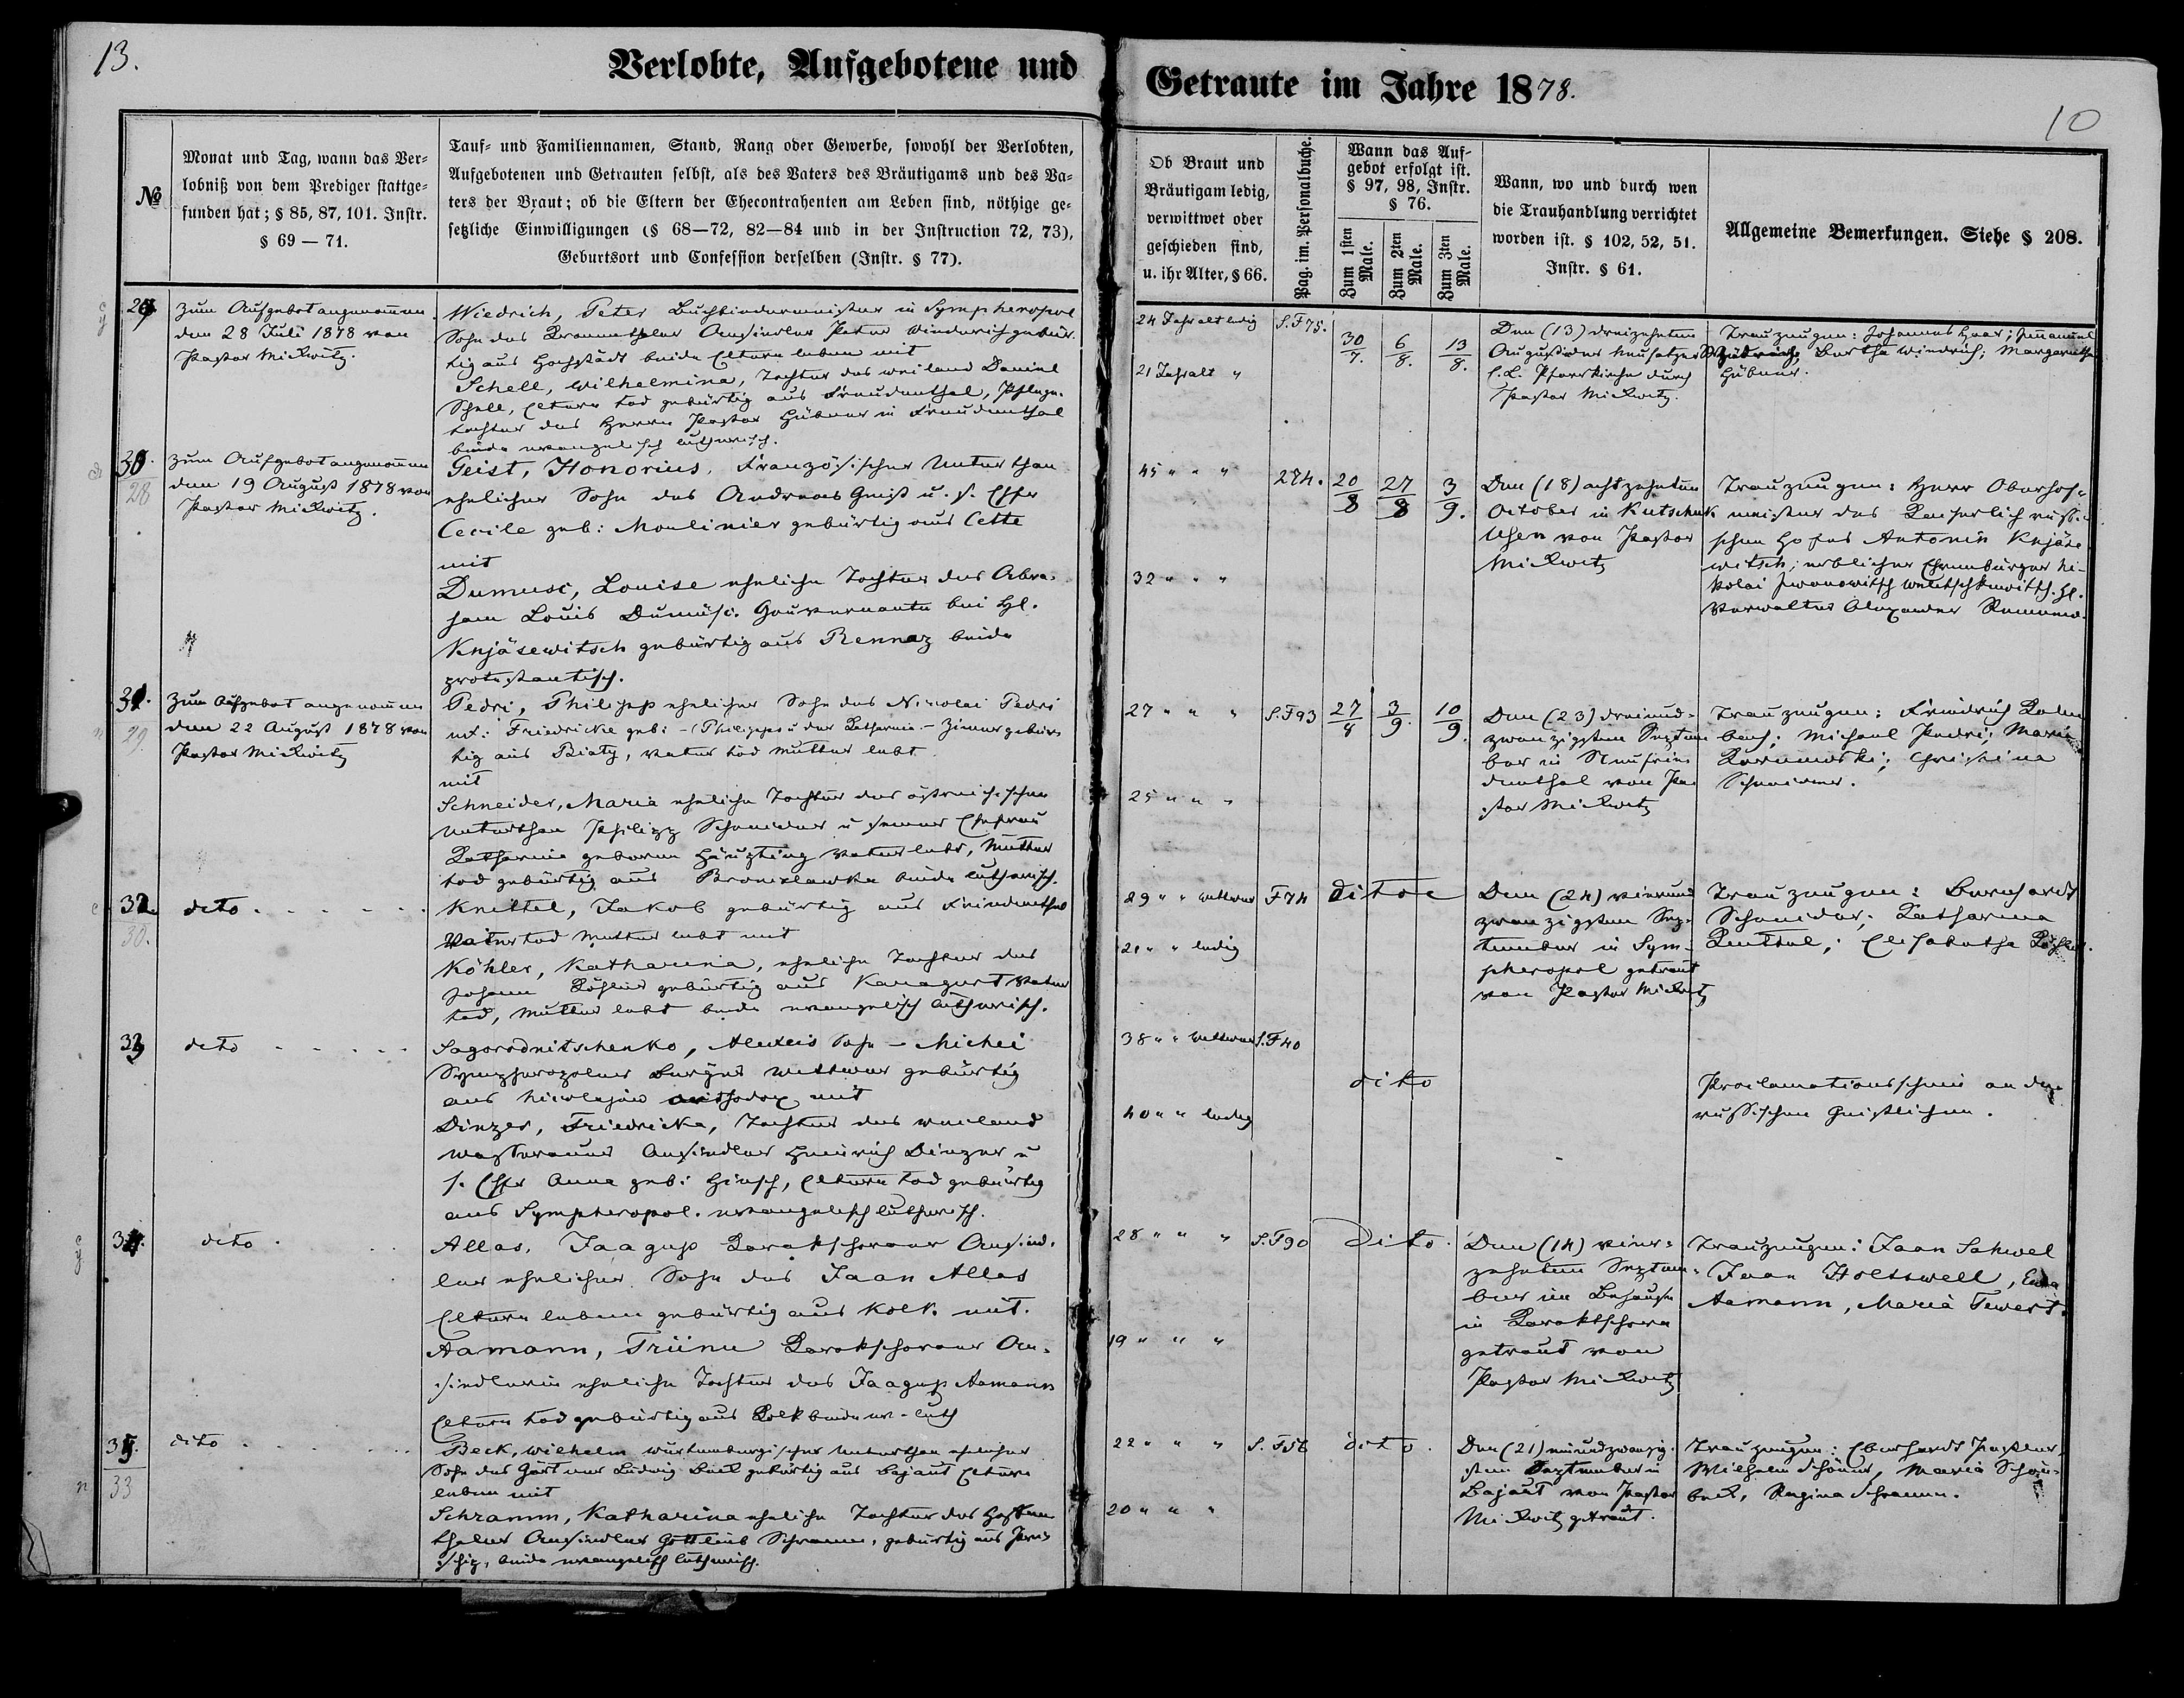 13.
Verlobte, Aufgebotene und
Getraute im Jahre 1878.
10
№
Monat und Tag, wann das Ver-
lobniß von dem Prediger stattge-
funden hat; § 85, 87, 101. Instr.
§ 69 — 71.
Tauf- und Familiennamen, Stand, Rang oder Gewerbe, sowohl der Verlobten,
Aufgebotenen und Getrauten selbst, als des Vaters des Bräutigams und des Va-
ters der Braut; ob die Eltern der Ehecontrahenten am Leben sind, nöthige ge-
setzliche Einwilligungen (§ 68—72, 82—84 und in der Instruction 72, 73),
Geburtsort und Confession derselben (Instr. § 77).
Ob Braut und
Bräutigam ledig,
verwittwet oder
geschieden sind,
u. ihr Alter, § 66.
Pag. im. Personalbuche.
Wann das Auf-
gebot erfolgt ist.
§ 97, 98, Instr.
§ 76.
Zum 1sten Male.
Zum 2ten Male.
Zum 3ten Male.
Wann, wo und durch wen
die Trauhandlung verrichtet
worden ist. § 102, 52, 51.
Instr. § 61.
Allgemeine Bemerkungen. Siehe § 208.
Zum Aufgebot angenommen
den 28 Juli 1878 von
Pastor Mickwitz.
Wiedrich, Peter Buchbindermeister in Sympheropol
Sohn des Kronenthaler Ansiedler Peter Wiedrich gebür-
tig aus Hochstädt beide Eltern leben mit
Schell, Wilhelmina, Tochter des weiland Daniel
Schell, Eltern tod gebürtig aus Freudenthal, Pflege-
tochter des Herrn Pastor Hübner in Freudenthal
beide evangelisch lutherisch.
24 Jahr alt ledig
21 Jahr alt "
S.F75.
30/7.
6/8.
13/8.
Den (13) dreizehnten
August in der Neusatzer
E.L. Pfarrkirche durch
Pastor Mickwitz.
Trauzeugen: Johannes Haar; Immanuel
Bertha Wiedrich; Margaretha
Hübner.
30.
28
Zum Aufgebot angenommen
den 19 August 1878 von
Pastor Mickwitz.
Geist, Honorius, Französischer Unterthan
ehelicher Sohn des Andreas Geist u. s. Ehfr
Cecile geb: Moulinier gebürtig aus Cette
mit
Dumusc, Louise eheliche Tochter des Abra-
ham Louis Dumusc. Gouvernante bei H.
Knjäsewitsch gebürtig aus Rennaz beide
protestantisch.
45 " " "
32 " " "
274.
20/8
27/8
3/9.
Den (18) achtzehnten
October in Kutschuk
Usen von Pastor
Mickwitz
Trauzeugen: Herr Oberhof-
meister des Kaiserlich russi-
schen Hofes Antonin Knjäse-
witsch; erblicher Ehrenbürger Ni-
kolai Iwanowitsch
Verwalter Alexander
31.
29.
Zum Aufgebot angenommen
den 22 August 1878 von
Pastor Mickwitz
Pedri, Philipp ehelicher Sohn des Nicolai Pedri
u. d. Friedricke geb: - (Philipps u der Katharina - Zimmer gebür
tig aus Biaty, Vater tod Mutter lebt
mit
Schneider, Maria eheliche Tochter des östreichischen
Unterthan Philipp Schneider u seiner Ehefrau
Katharina geborne Vater lebt, Mutter
tod gebürtig aus Bronizlawka beide lutherisch.
27 " " "
25 " " "
S.F93
27/8
3/9.
10/9.
Den (23) dreiund-
zwanzigsten Septem-
ber in Neufreu-
denthal von Pa-
stor Mickwitz
Trauzeugen: Friedrich Kolm
bach; Michael Pedri; Maria
Christina
Schneider.
32.
30.
dito . . . . .
Knittel, Jakob gebürtig aus Friedenthal
Vater tod Mutter lebt mit
Köhler, Katharina, eheliche Tochter des
Johann Köhler gebürtig aus Kanagurt Vater
tod, Mutter lebt beide evangelisch lutherisch.
29 " " Wittwer
21 " " ledig
F74
ditoe
Den (24) vierund
zwanzigsten Sep-
tember in Sym-
pheropol getraut
von Pastor Mickwitz
Trauzeugen: Bernhardt
Schneider; Katharina
Knittel; Elisabetha Köhler.
33
dito . . . . .
Sagorodnitschenko, Alexeis Sohn - Michei
Sympheropoler Bürger Wittwer gebürtig
aus Nicolajew orthodox mit
Dinzer, Friedricka, Tochter des weiland
Ansiedler Heinrich Dinzer u
s. Ehfr Anna geb: Hirsch, Eltern tod gebürtig
aus Sympheropol. evangelisch lutherisch.
38 " " Wittwer
40 " " ledig
S.F40
dito
Proclamationsschein an den
russischen Geistlichen.
34.
dito .
Allas, Jaagup Karaktschoraer Ansied-
ler ehelicher Sohn des Jaan Allas
Eltern leben gebürtig aus Kolk mit.
Aamann, Triinu Karaktschoraer An-
siedlerin eheliche Tochter des Jaagup Aamann
Eltern tod gebürtig aus Kolk beide ev-luth
28 " " "
19 " " "
S.F90
Dito.
Den (14) vier-
zehnten Septem-
ber im Bethause
in Karaktschora
getraut von
Pastor Mickwitz
Trauzeugen: Jaan Sakwel
Jaan Holtswell,
Aamann, Maria Tewert.
35.
33
dito . . . . .
Beck, Wilhelm würtembergischer Unterthan ehelicher
Sohn des Gärtner Ludwig Beck gebürtig aus Bajaut Eltern
leben mit
Schramm, Katharina eheliche Tochter des
thaler Ansiedler Gottlieb Schramm, gebürtig aus
beide evangelisch lutherisch.
22 " " "
20 " " "
S.F56
dito.
Den (21) einundzwanzig-
sten September in
Bajaut von Pastor
Mickwitz getraut.
Trauzeugen: Eberhardt
Wilhelm Schöner, Maria
beck, Regina Schramm.